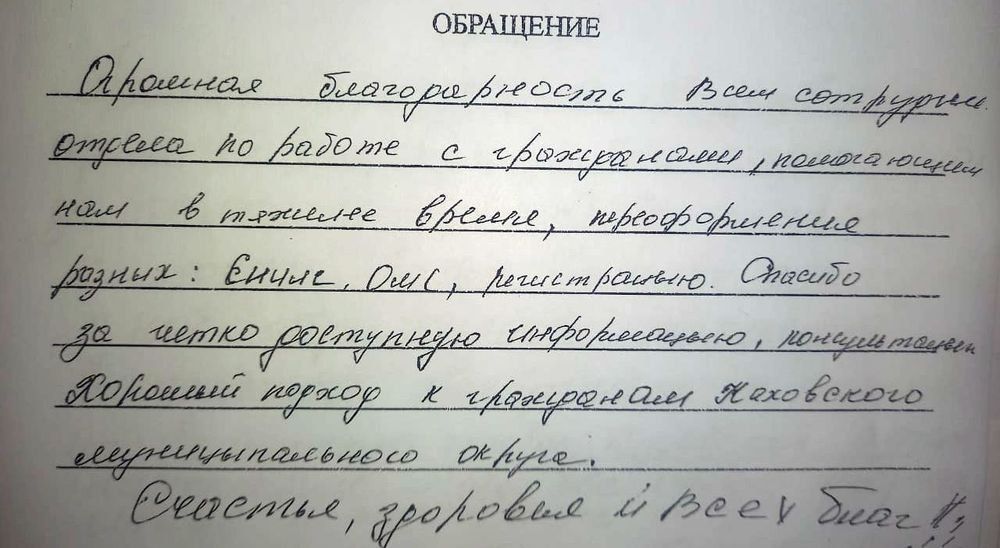 ОБРАЩЕНИЕ
Огромная благодарность всем сотрудни
отдела по работе с гражданами, помогающим
нам в тяжелее время, переоформения
разных: Снилс, ОМС, регистрацыю. Спасибо
за четко доступную информацыю, консультацыи
Хороший подход к гражданам Каховского
муницыпального округа.
Счастья, здоровья и всех благ !!